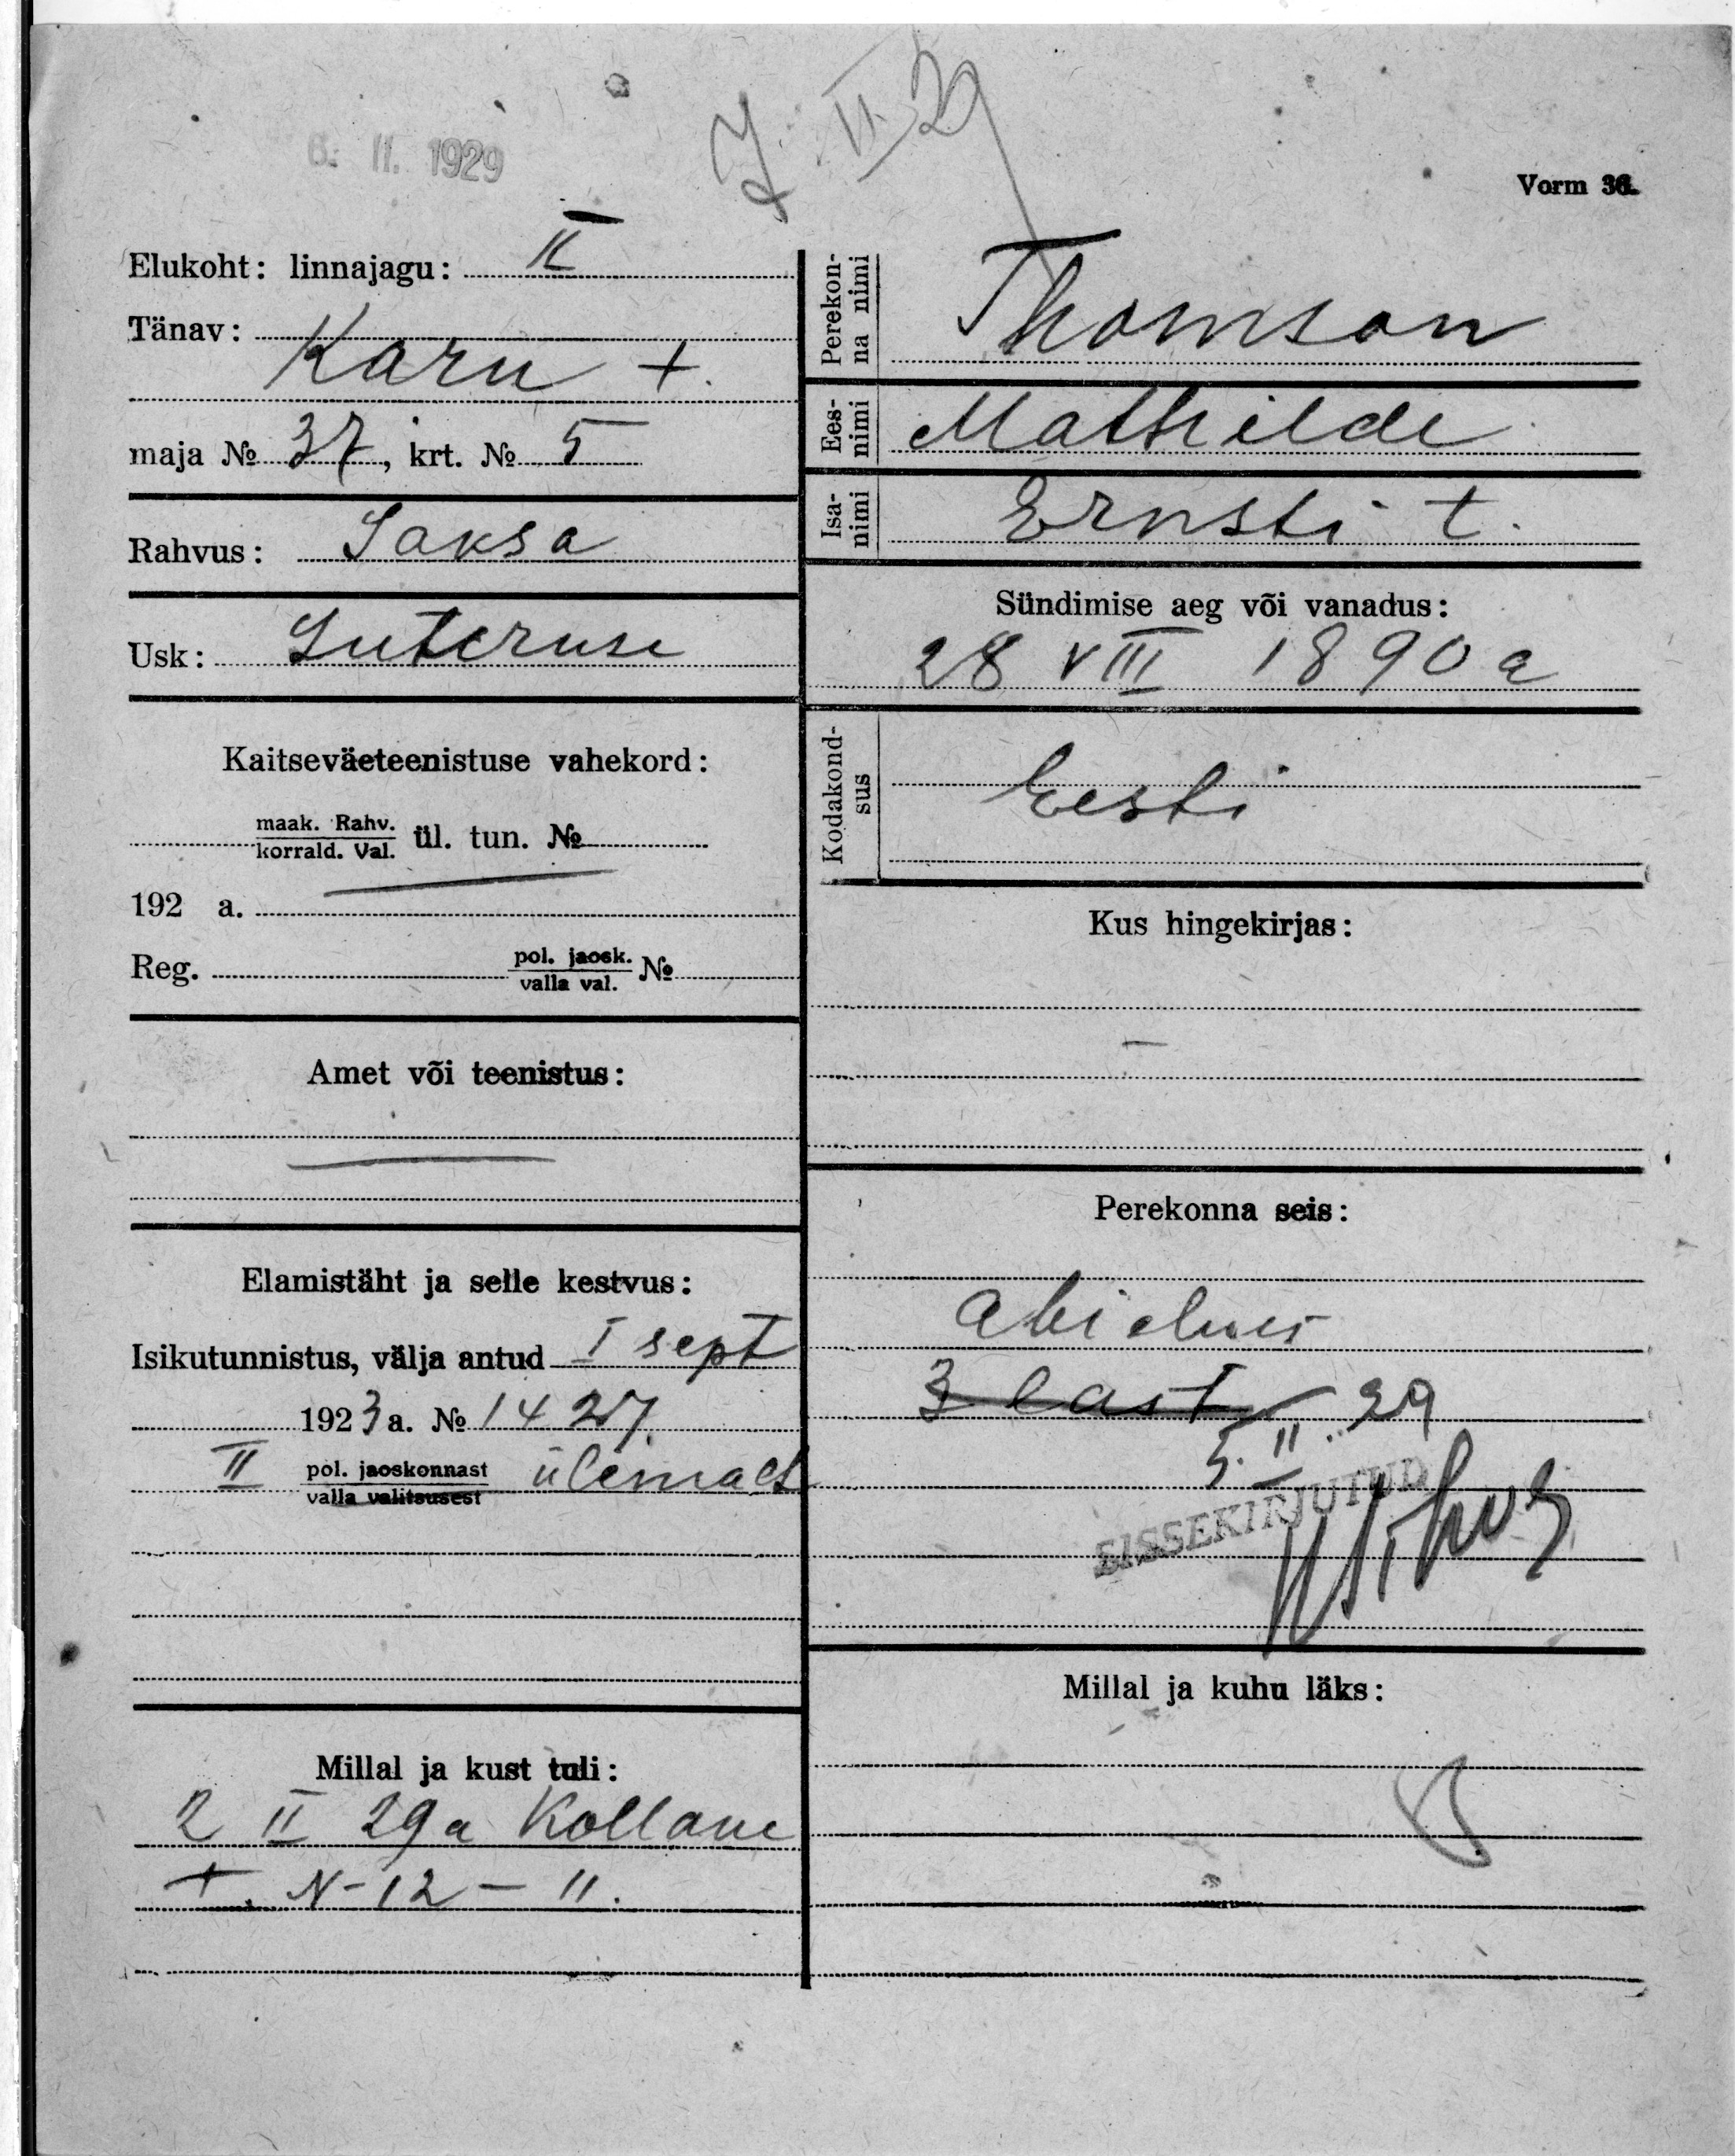 6. II. 1929
7. II. 29
Vorm 36.
Elukoht: linnajagu: II
Tänav:
Karu t.
maja № 37, krt. № 5
Rahvus: Saksa
Usk: Luteruse
Kaitseväeteenistuse vahekord:
maak. Rahv.
korrald. Val. ül. tun. №
192 a.
Reg. pol. jaosk.
valla val. №
Amet või teenistus:
Elamistäht ja selle kestvus:
Isikutunnistus, välja antud I sept
1923 a. № 1427
II pol. jaoskonnast ülemalt
valla valitsusest
Millal ja kust tuli:
2 II 29 a Kollane
t. N-12-11.
Perekon-
na nimi
Thomson
Ees-
nimi
Mathilde
Isa-
nimi
Ernsti t.
Sündimise aeg või vanadus:
28 VIII 1890 a
Kodakond-
sus
Eesti
Kus hingekirjas:
—
Perekonna seis:
abielus
3 last
5. II. 29
SISSEKIRJUTUD
Millal ja kuhu läks: